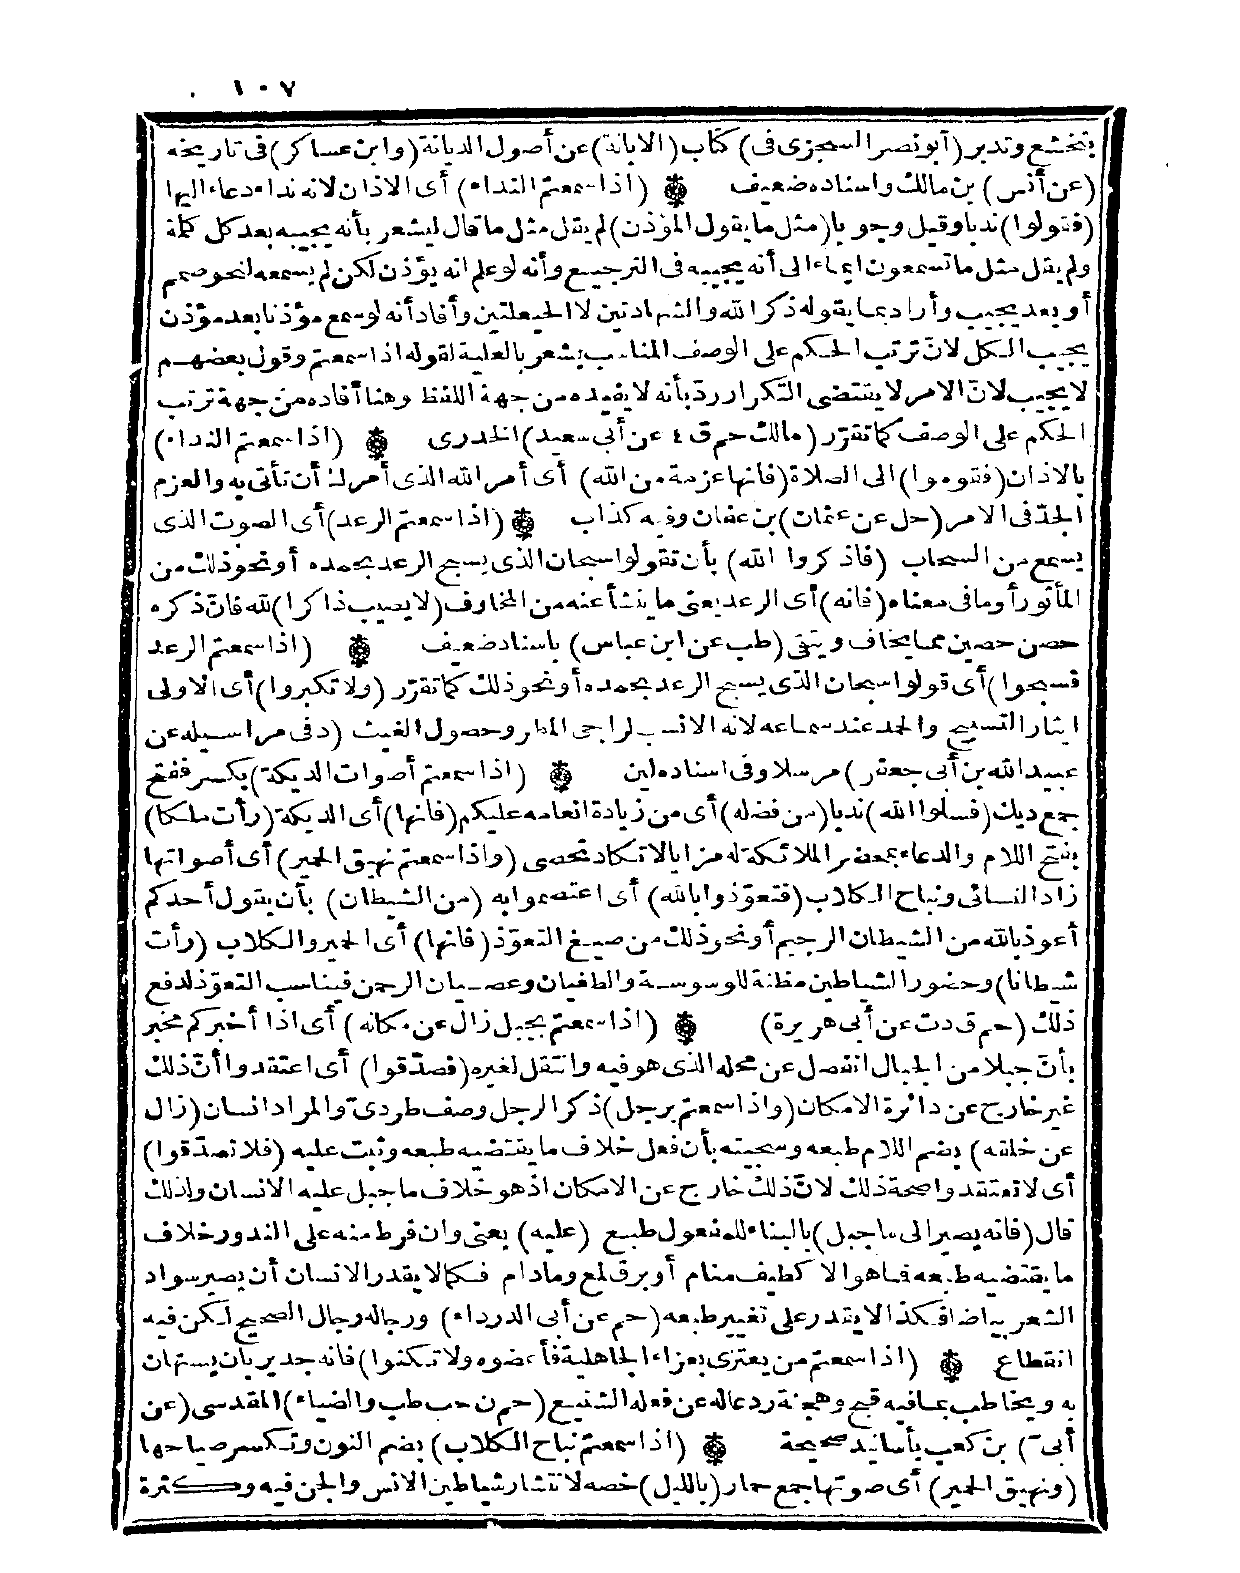 ١٠٧
بتخشع وتدبر (أبو نصر السجزى فى) كتاب (الابانة) عن أصول الديانة (وابن عساكر) فى تاريخه
(عن أنس) بن مالك واسناده ضعيف (اذا سمعتم النداء) أى الاذان لانه نداء دعاء اليها
(فقولوا) ندبا وقيل وجوبا (مثل ما يقول المؤذن) لم يقل مثل ما قال ليشعر بأنه يجيبه بعد كل كلمة
ولم يقل مثل ما تسمعون ايماء الى أنه يجيبه فى الترجيع وأنه لو علم انه يؤذن لكن لم يسمعه لنحو صمم
أو بعد يجيب وأراد بما يقوله ذكر الله والشهادتين لا الحيعلتين وأفاد أنه لو سمع مؤذنا بعد مؤذن
يجيب الكل لانّ ترتب الحكم على الوصف المناسب يشعر بالعلية لقوله اذا سمعتم وقول بعضهم
لا يجيب لانّ الامر لا يقتضى التكرار ردّ بأنه لا يفيده من جهة اللفظ وهنا أفاده من جهة ترتب
الحكم على الوصف كما تقرّر (مالك حم ق ٤ عن أبى سعيد) الخدرى (اذا سمعتم النداء)
بالاذان (فقوموا) الى الصلاة (فانها عزمة من الله) أى أمر الله الذى أمرك أن تأتى به والعزم
الجدّ فى الامر (حل عن عثمان) بن عفان وفيه كذاب (اذا سمعتم الرعد) أى الصوت الذى
يسمع من السحاب (فاذكروا الله) بأن تقولوا سبحان الذى يسبح الرعد بحمده أو نحو ذلك من
المأثور أو ما فى معناه (فانه) أى الرعد يعنى ما ينشأ عنه من المخاوف (لا يصيب ذاكرا) لله فانّ ذكره
حصن حصين مما يخاف ويتقى (طب عن ابن عباس) باسناد ضعيف (اذا سمعتم الرعد
فسبحوا) أى قولوا سبحان الذى يسبح الرعد بحمده أو نحو ذلك كما تقرّر (ولا تكبروا) أى الاولى
ايثار التسبيح والحمد عند سماعه لانه الانسب لراجى المطر وحصول الغيث (د فى مراسيله عن
عبيد الله بن أبى جعفر) مرسلا وفى اسناده لين (اذا سمعتم أصوات الديكة) بكسر ففتح
جمع ديك (فسلوا الله) ندبا (من فضله) أى من زيادة انعامه عليكم (فانها) أى الديكة (رأت ملكا)
بفتح اللام والدعاء بمحضر الملائكة له مزايا لا تكاد تحصى (واذا سمعتم نهيق الحمير) أى أصواتها
زاد النسائى ونباح الكلاب (فتعوّذوا بالله) أى اعتصموا به (من الشيطان) بأن يقول أحدكم
أعوذ بالله من الشيطان الرجيم أو نحو ذلك من صيغ التعوّذ (فانها) أى الحمير والكلاب (رأت
شيطانا) وحضور الشياطين مظنة للوسوسة والطغيان وعصيان الرحمن فيناسب التعوّذ لدفع
ذلك (حم ق د ت عن أبى هريرة) (اذا سمعتم بجبل زال عن مكانه) أى اذا أخبركم مخبر
بأنّ جبلا من الجبال انفصل عن محله الذى هو فيه وانتقل لغيره (فصدّقوا) أى اعتقدوا أنّ ذلك
غير خارج عن دائرة الامكان (واذا سمعتم برجل) ذكر الرجل وصف طردىّ والمراد انسان (زال
عن خلقه) بضم اللام طبعه وسجيته بأن فعل خلاف ما يقتضيه طبعه وثبت عليه (فلا تصدّقوا)
أى لا تعتقدوا صحة ذلك لانّ ذلك خارج عن الامكان اذ هو خلاف ما جبل عليه الانسان ولذلك
قال (فانه يصير الى ما جبل) بالبناء للمفعول طبع (عليه) يعنى وان فرط منه على الندور خلاف
ما يقتضيه طبعه فما هو الا كطيف منام أو برق لمع وما دام فكما لا يقدر الانسان أن يصير سواد
الشعر بياضا فكذا لا يقدر على تغيير طبعه (حم عن أبى الدرداء) ورجاله رجال الصحيح لكن فيه
انقطاع (اذا سمعتم من يعتزى بعزاء الجاهلية فأعضوه ولا تكنوا) فانه جدير بأن يستهان
به ويخاطب بما فيه قبح وهجنة ردعا له عن فعله الشنيع (حم ن حب طب والضياء) المقدسى (عن
أبىّ) بن كعب بأسانيد صحيحة (اذا سمعتم نباح الكلاب) بضم النون وتكسر صياحها
(ونهيق الحمير) أى صوتها جمع حمار (بالليل) خصه لانتشار شياطين الانس والجن فيه وكثرة